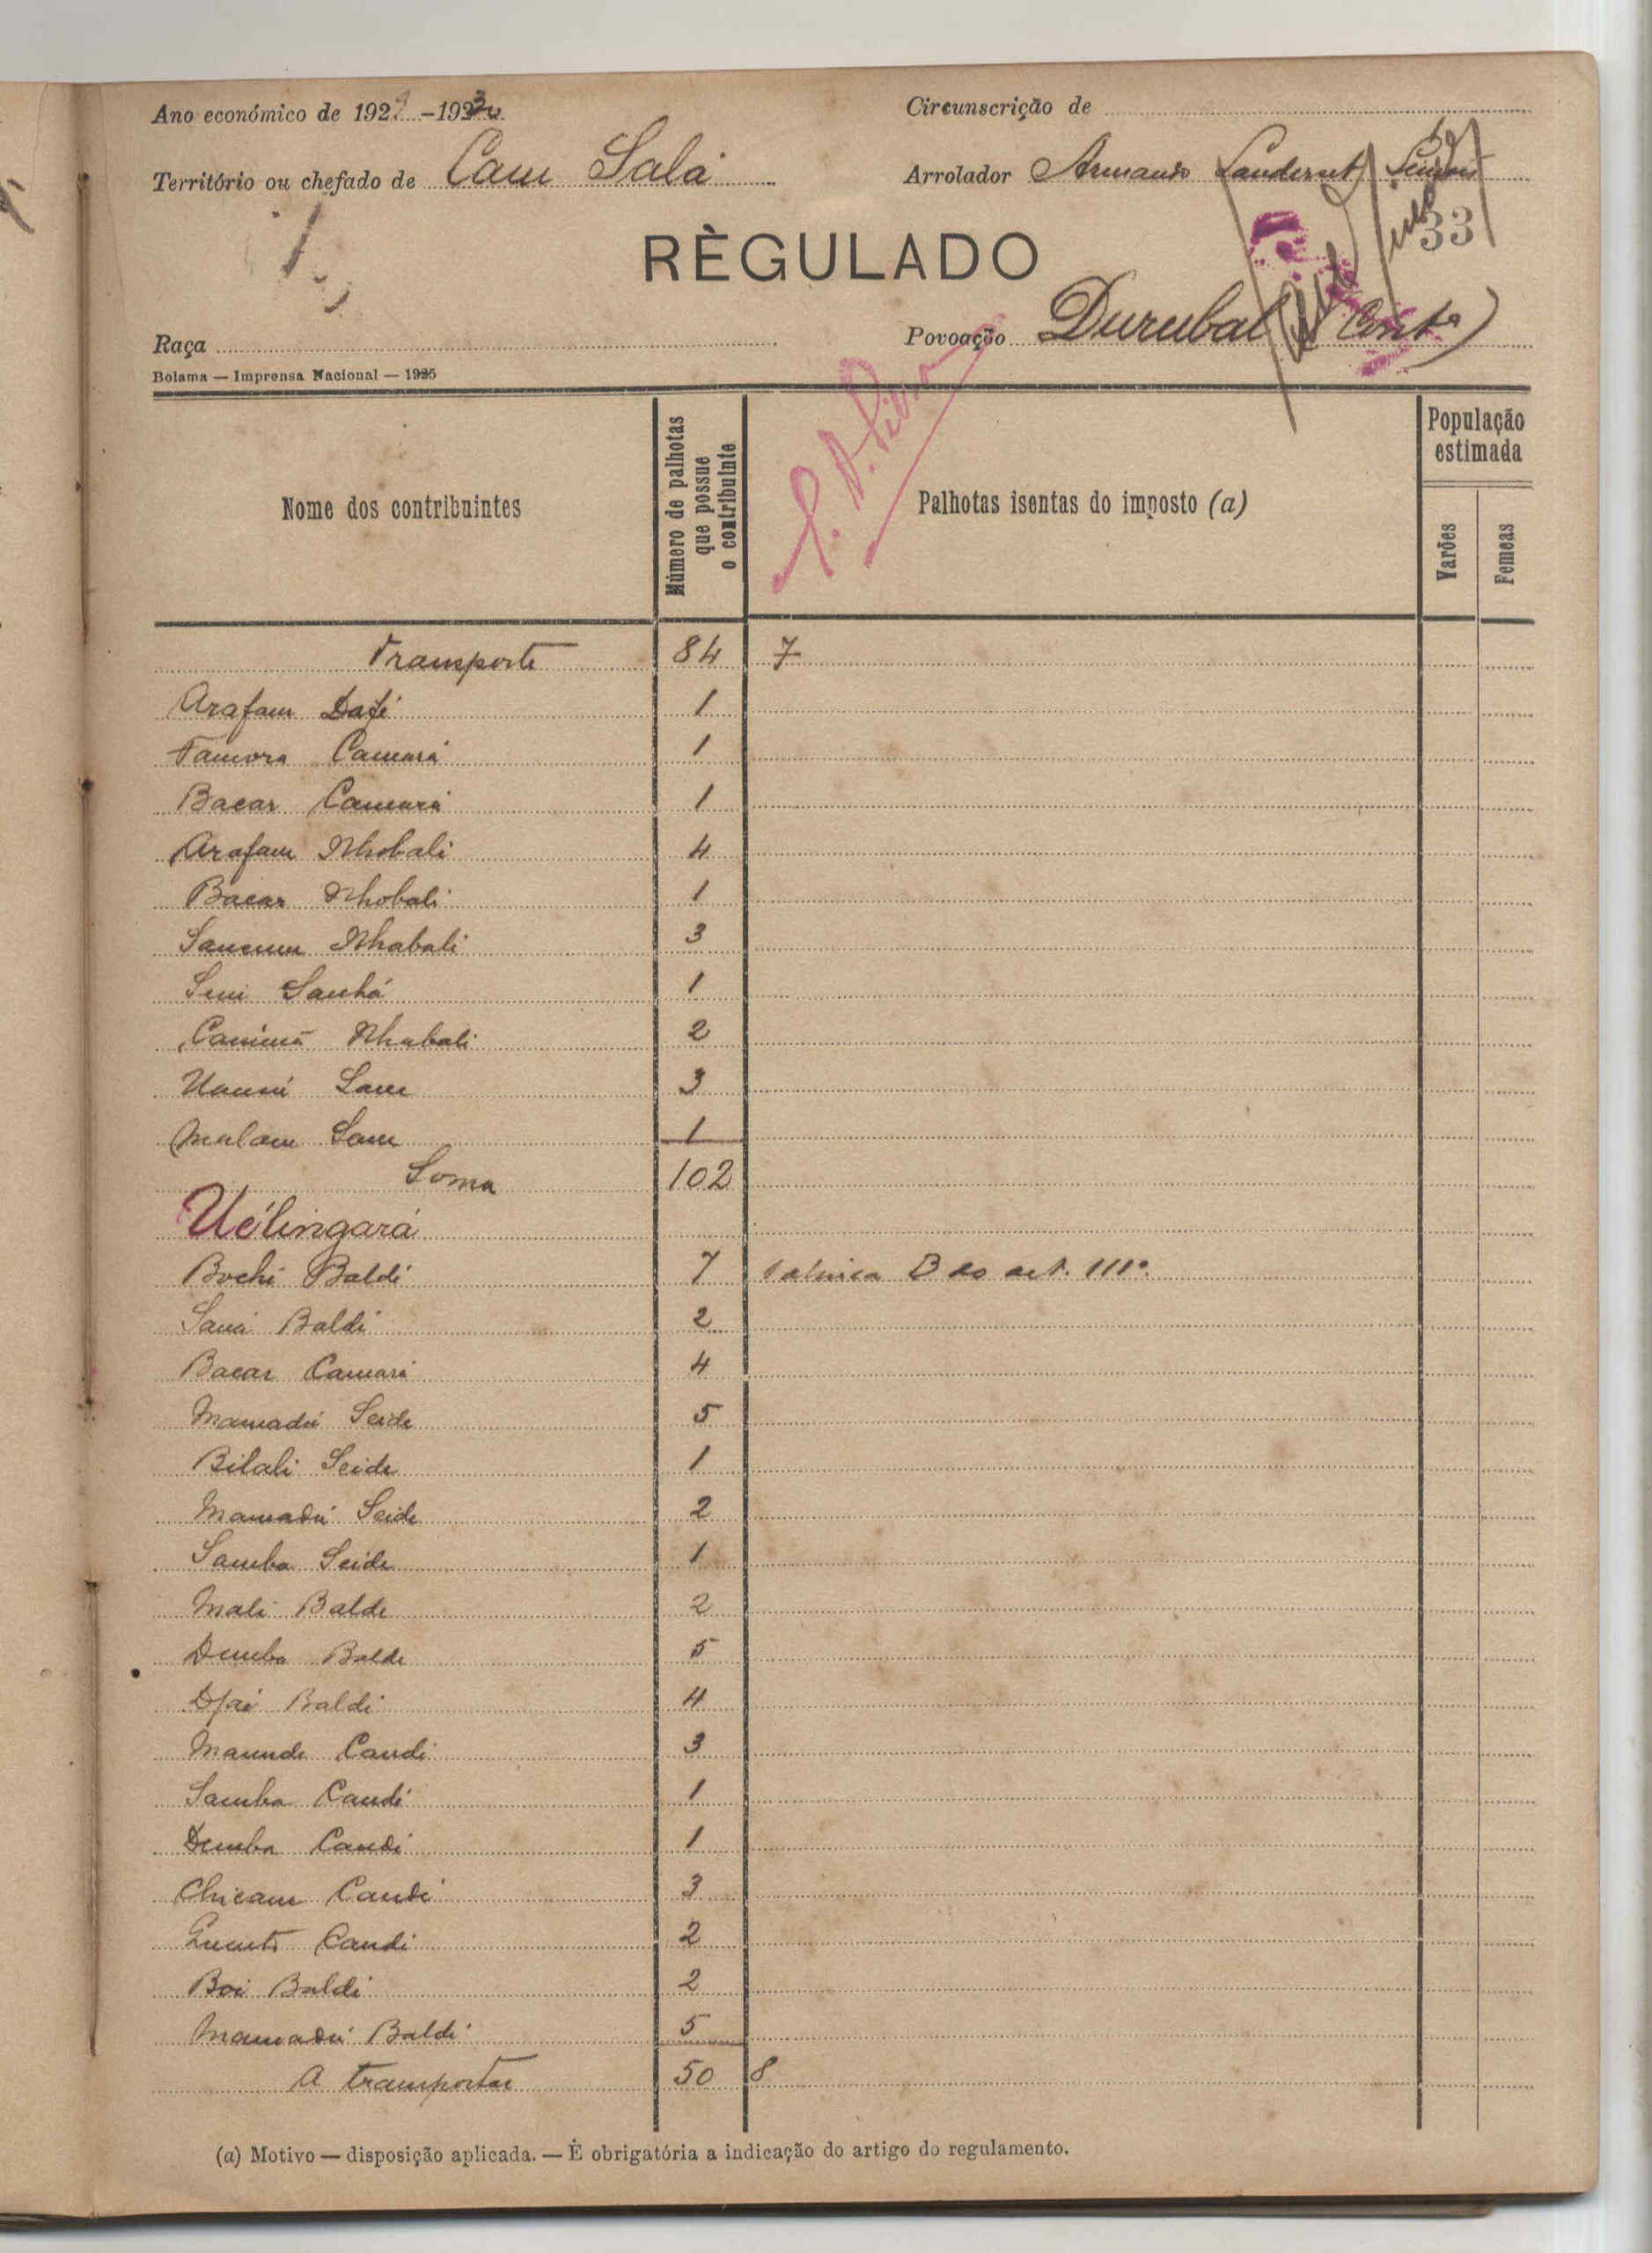 Ano económico de 1929-1930
Circunscrição de
Território ou chefado de Cam Salá
Arrolador Armando
33
RÈGULADO
Raça
Povoação Durubali (Conto)
Bolama — Imprensa Nacional — 1925
Nome dos contribuintes
Número de palhotas que possue o contribuinte
Palhotas isentas do imposto (a)
População estimada
Varões
Femeas
Transporte 84 7
Arafam Dafé 1
Tamora Camará 1
Bacar Camará 1
Arafam Nhobali 4
Bacar Nhobali 1
Nhabali 3
Seni Sanhá 1
Nhabali 2
Sam 3
Malam Sam 1
Soma 102
Uélingará
Bochi Baldé 7 B do art. 111º
Saná Baldé 2
Bacar Camará 4
Mamadú Seide 5
Bilali Seide 1
Mamadú Seide 2
Samba Seide 1
Mali Balde 2
Demba Balde 5
Djai Baldé 4
Maunde Candé 3
Samba Candé 1
Demba Candé 1
Chicam Candé 3
Candé 2
Boi Baldé 2
Mamadú Baldé 5
A transportar 50 8
(a) Motivo — disposição aplicada. — È obrigatória a indicação do artigo do regulamento.